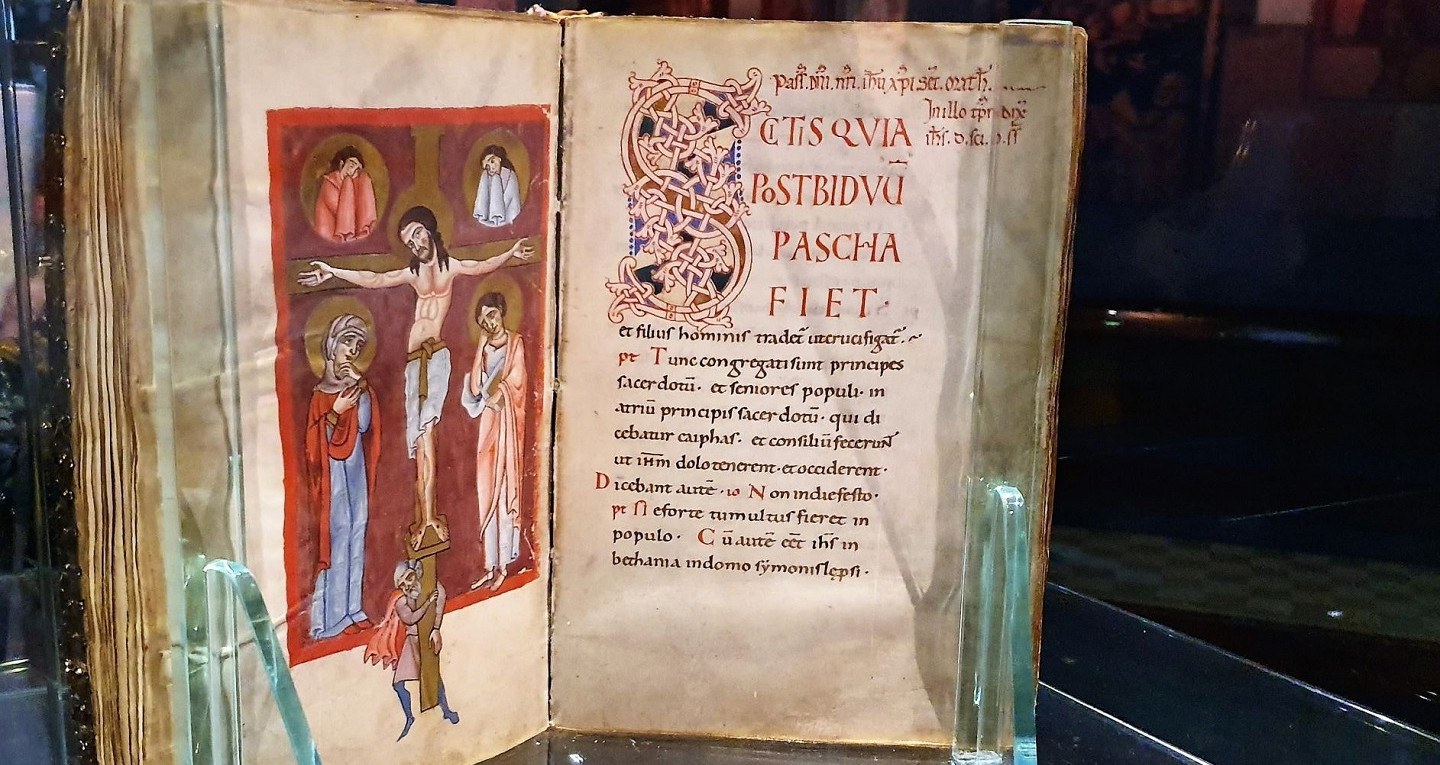 Pass. Dñi. nr̃i. ihũ xp̃i. sec̃. math̃.
In illo tp̃r dix̃
ih̃s. d. sci. s. s̃
SCITIS QVIA
POST BIDVŪ
PASCHA
FIET·
et filius hominis tradet̃ ut crucifigat̃.
pt Tunc congregati sunt principes
sacerdotũ· et seniores populi· in
atriũ principis sacerdotũ· qui di
cebatur caiphas· et consiliũ fecerunt
ut ih̃m dolo tenerent· et occiderent·
Dicebant autẽ· io Non in die festo·
pt Ne forte tumultus fieret in
populo· Cũ autẽ eẽt ih̃s in
bethania in domo symonis lępsi·